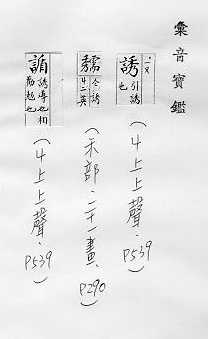 彙音寶鑑
誘 引誘也
(4上上聲．P539)
仝誘
(禾部．二十一畫．P290)
誘導也相勸起也
(4上上聲．P539)